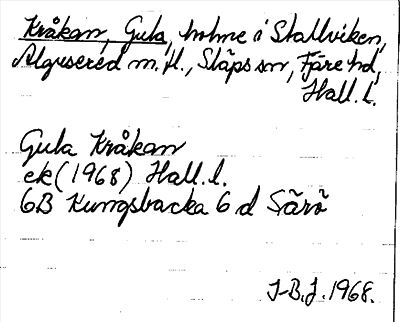 Kråkan, Gula, holme i Stallviken,
Algusered m.fl., Släps sn, Fjäre hd,
Hall. l.
Gula Kråkan
ek (1968) Hall. l.
6B Kungsbacka 6 d Särö
J-B.J. 1968.